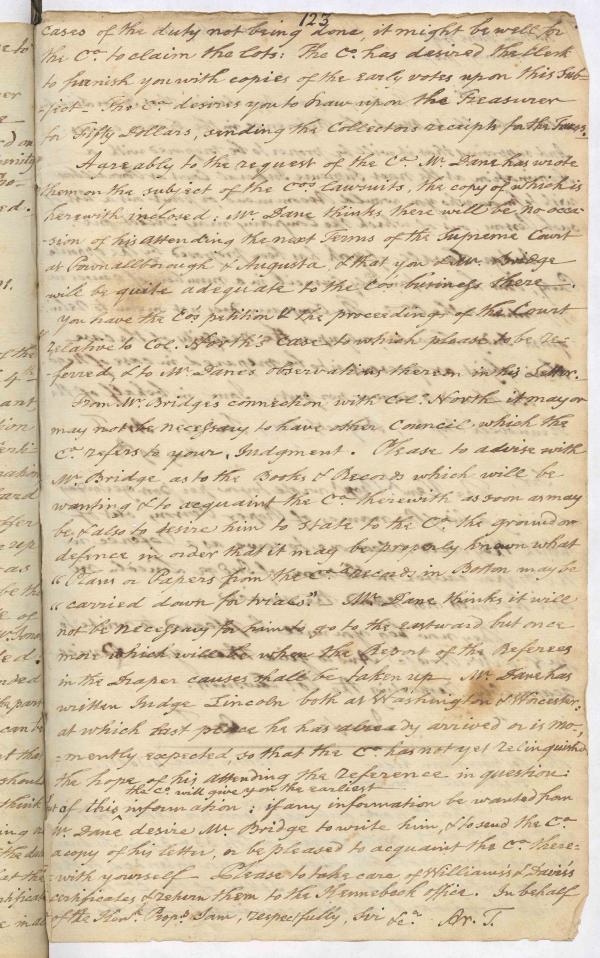 123
cases of the duty not being done, it might be well for
the Co. to claim the Lots: The Co. has desired the Clerk
to furnish you with copies of the early votes upon this Sub-
-ject. The Co. desires you to draw upon the Treasurer
for Fifty Dollars, sending the Collectors receipts for the Taxes.
Agreably to the request of the Co. Mr. Dane has wrote
them on the subject of the Cos. Lawsuits, the copy of which is
herewith inclosed: Mr. Dane thinks there will be no occa-
-sion of his attending the next Terms of the Supreme Court
at Pownallborough & Augusta, & that you & Mr. Bridge
will be quite adequate to the Cos business there.
You have the Cos petition & the proceedings of the Court
relative to Col. North's case to which please to be re-
-ferred, & to Mr Danes observations thereon in his Letter.
From Mr. Bridges connection with Col. North it may or
may not be necessary to have other Council, which the
Co. refers to your Judgment. Please to advise with
Mr. Bridge as to the Books & Records which will be
wanting & to acquaint the Co. therewith as soon as may
be, & also to desire him to state to the Co. the ground or
defence in order that it may be properly known what
"Plans or Papers from the Cos. records in Boston may be
"carried down for trials." Mr. Dane thinks it will
not be necessary for him to go to the eastward but once
more which will be when the Report of the Referees
in the Draper causes shall be taken up. Mr. Dane has
written Judge Lincoln both at Washington & Worcester:
at which last place he has already arrived or is mo-
-mently expected, so that the Co. has not yet relinquished
the hope of his attending the reference in question:
the Co. will give you the earliest
of this information: if any information be wanted from
Mr. Dane desire Mr. Bridge to write him, & to send the Co.
a copy of his letter, or be pleased to acquaint the Co. there-
-with yourself. Please to take care of Williams's & Davis's
certificates & return them to the Kennebeck Office. In behalf
of the Honl. Props. I am, respectfully, Sir &ca. Ar. T.